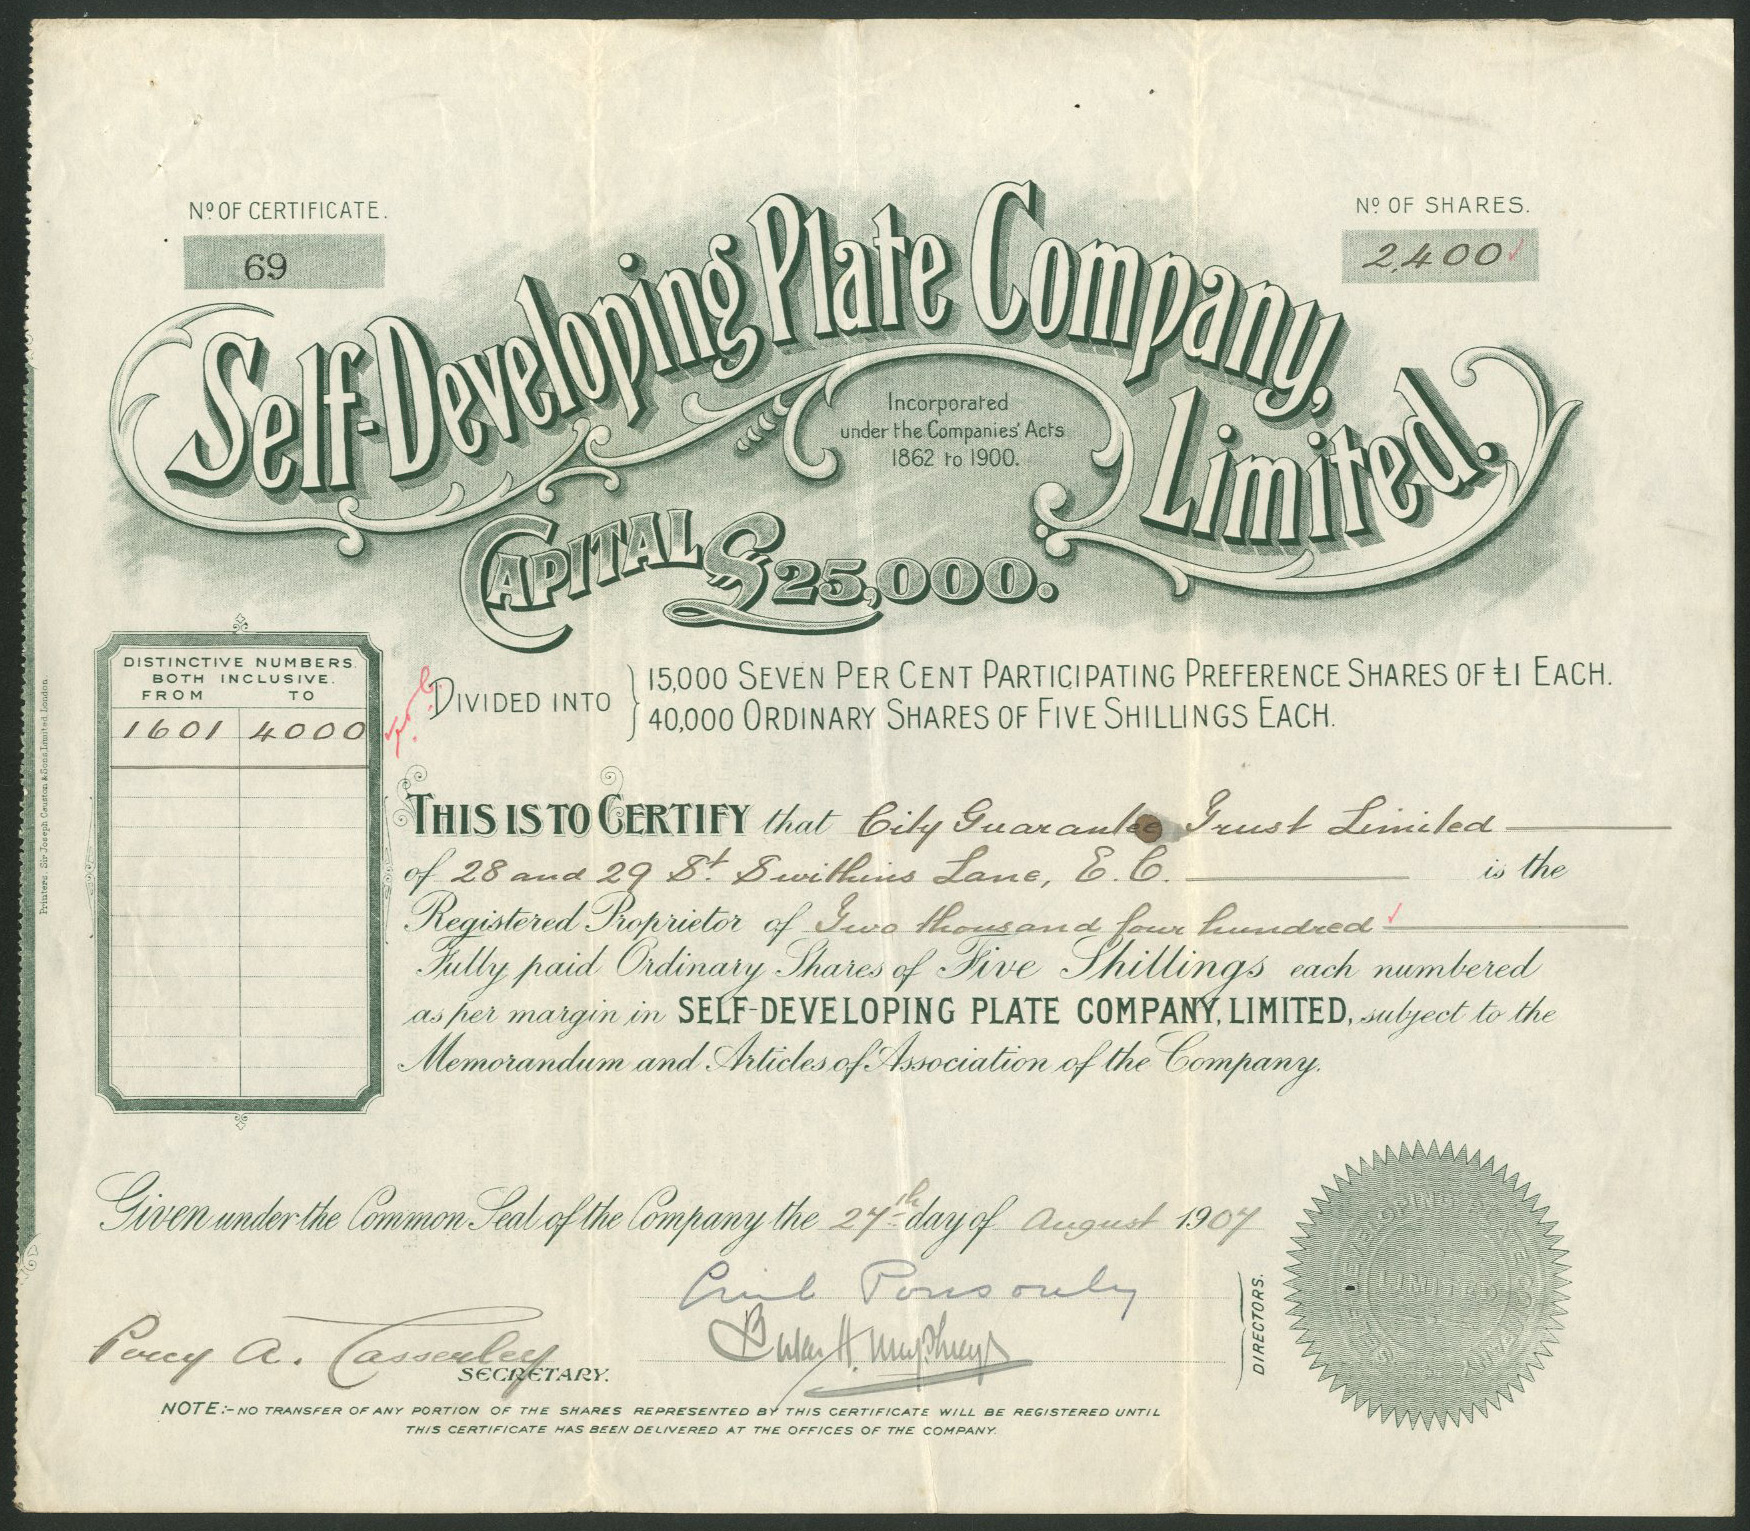 Nº OF CERTIFICATE.
69
Nº OF SHARES.
2,400
Self-Developing Plate Company, Limited.
Incorporated
under the Companies' Acts
1862 to 1900.
CAPITAL £25,000.
DISTINCTIVE NUMBERS.
BOTH INCLUSIVE.
FROM TO
1601 4000
DIVIDED INTO
15,000 SEVEN PER CENT PARTICIPATING PREFERENCE SHARES OF £1 EACH.
40,000 ORDINARY SHARES OF FIVE SHILLINGS EACH.
THIS IS TO CERTIFY that City Guarantee Trust Limited
of 28 and 29 St. Swithins Lane, E.C. is the
Registered Proprietor of Two thousand four hundred
Fully paid Ordinary Shares of Five Shillings each numbered
as per margin in SELF-DEVELOPING PLATE COMPANY, LIMITED, subject to the
Memorandum and Articles of Association of the Company.
Given under the Common Seal of the Company the 27th day of August 1907
Ponsonby
Humphreys
DIRECTORS.
Percy A. Casserley
SECRETARY.
NOTE:- NO TRANSFER OF ANY PORTION OF THE SHARES REPRESENTED BY THIS CERTIFICATE WILL BE REGISTERED UNTIL
THIS CERTIFICATE HAS BEEN DELIVERED AT THE OFFICES OF THE COMPANY.
SELF DEVELOPING PLATE COMPANY
LIMITED
Printers: Sir Joseph Causton & Sons Limited London